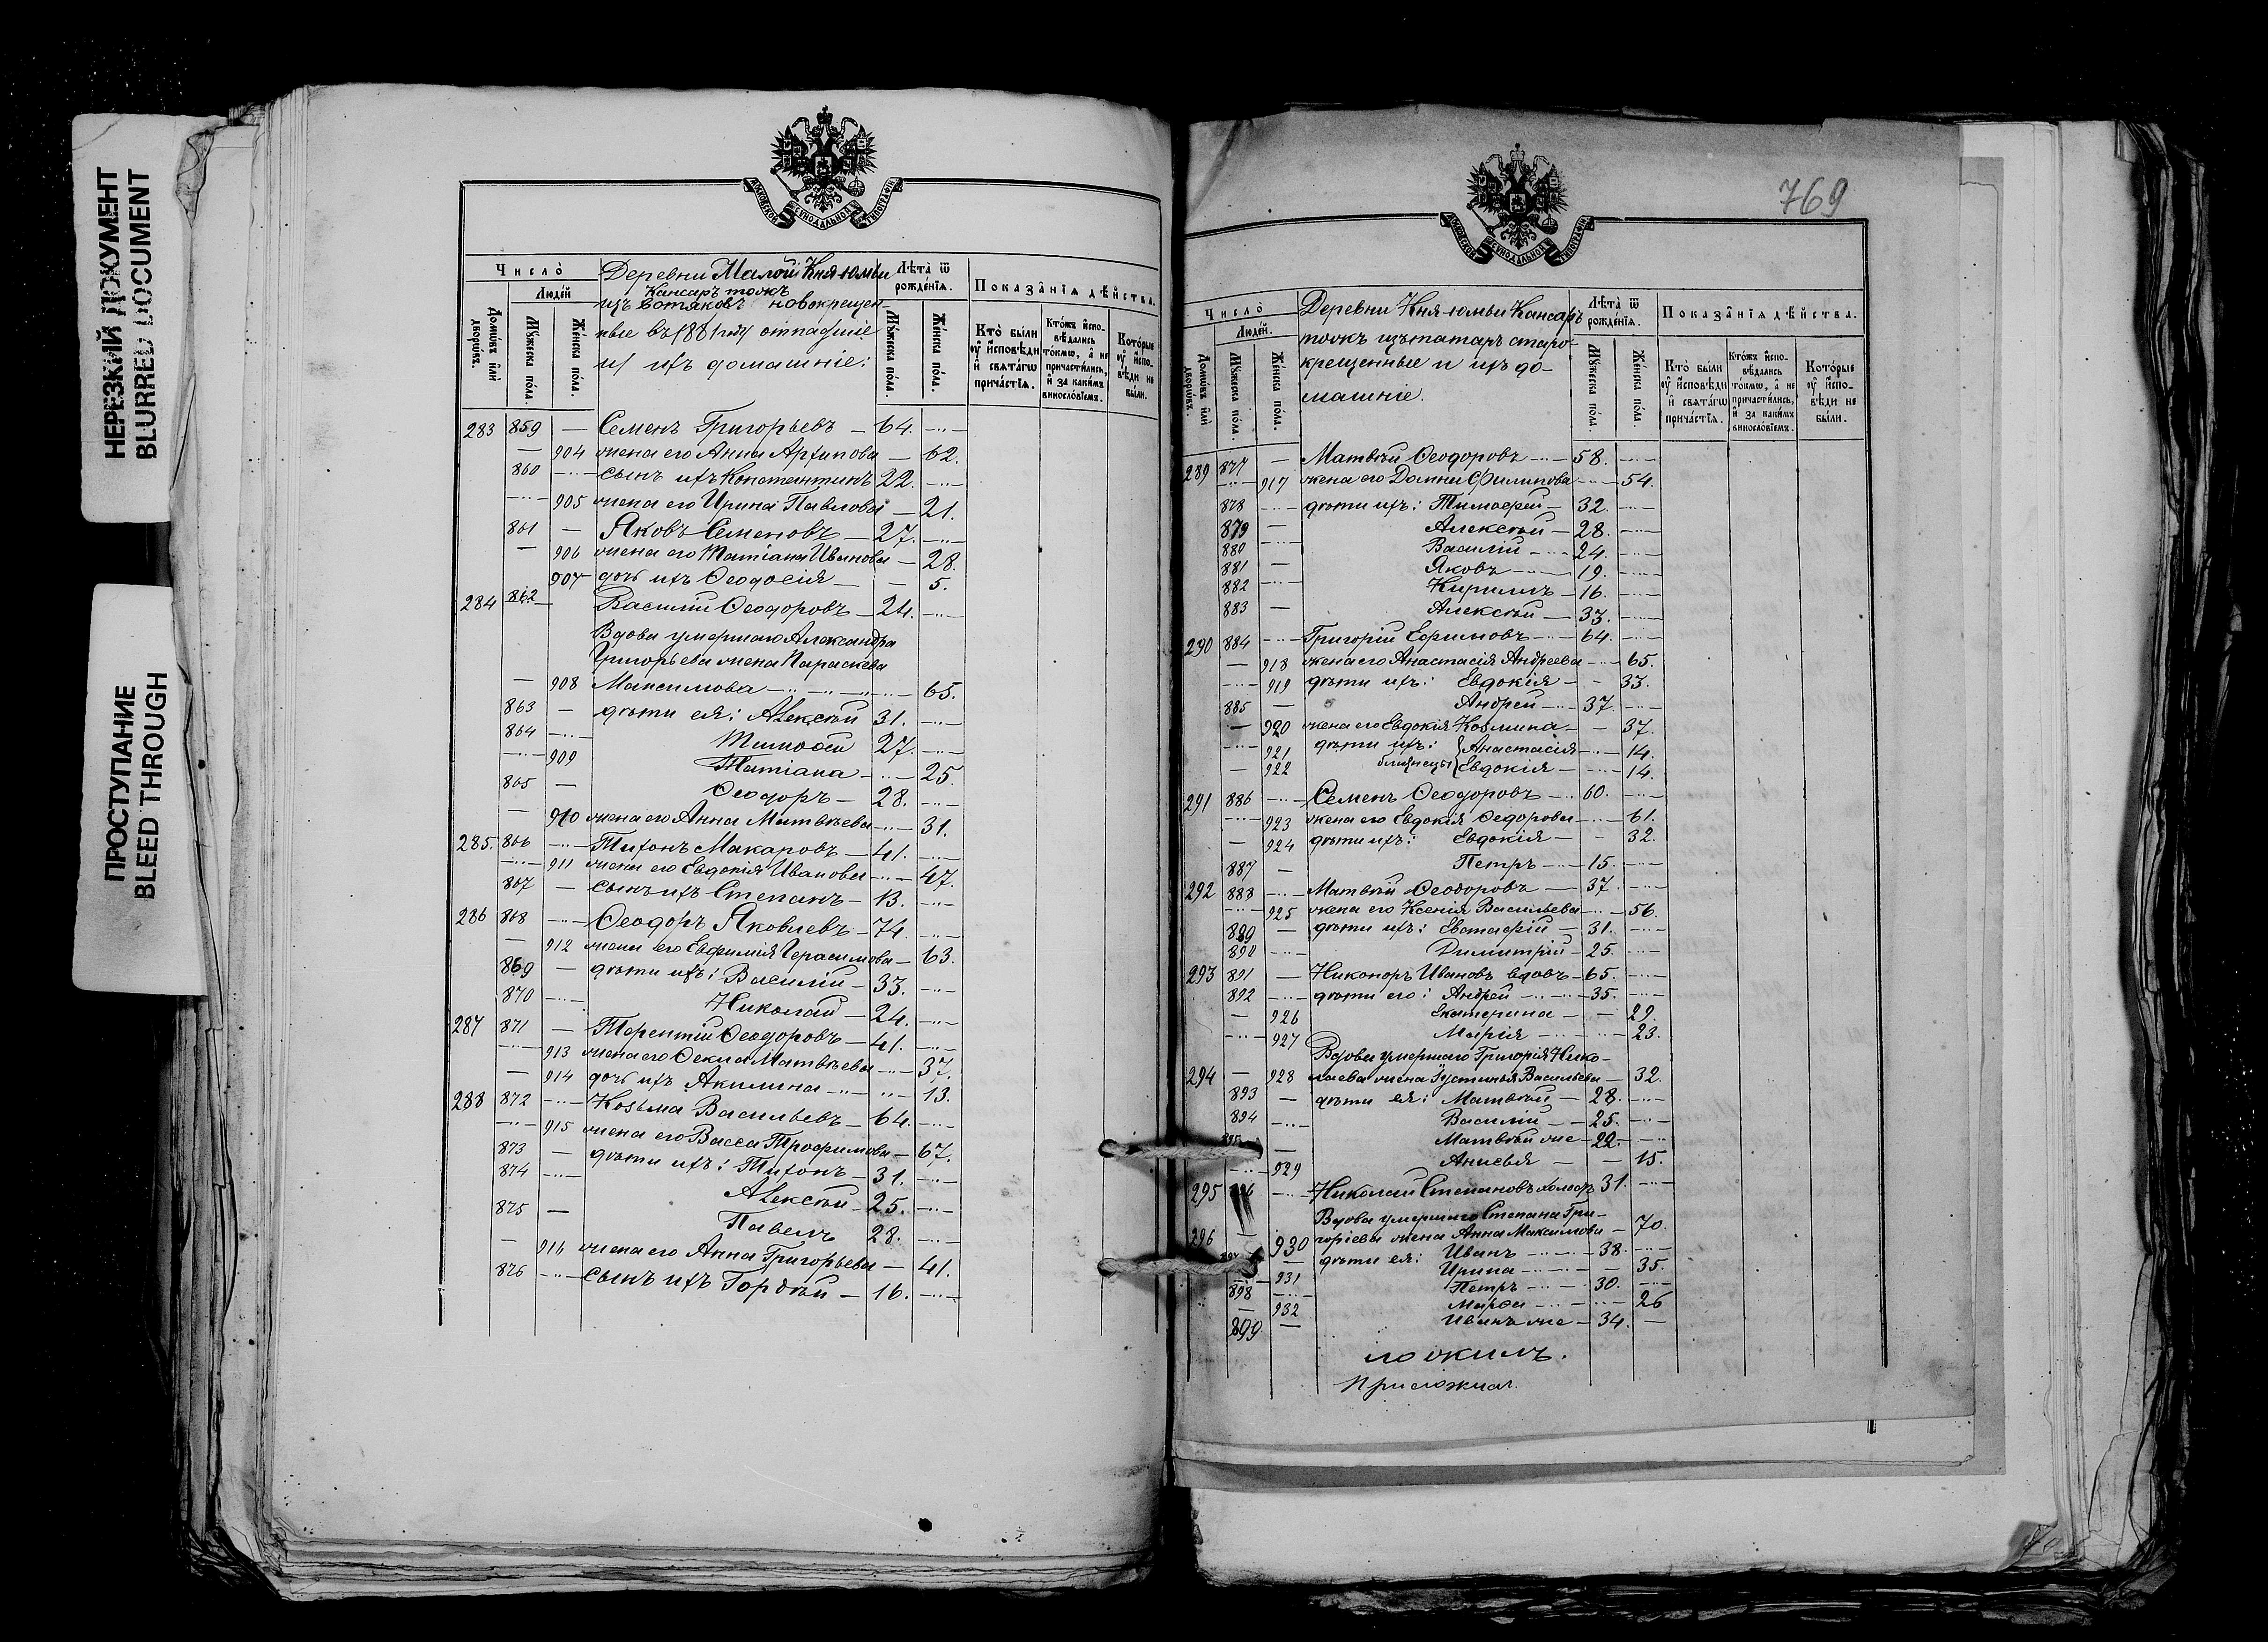 НЕРЕЗКИЙ ДОКУМЕНТ
BLURRED DOCUMENT
ПРОСТУПАНИЕ
BLEED THROUGH
МОСКОВСКОЙ СѴНОДАЛЬНОЙ ТИПОГРАФІИ
Число̀
Людей
Домѡвъ или дворѡвъ.
Мꙋжеска пола.
Женска пола.
Деревни Малой Княюмьи
Кансаръ тожъ
изъ вотяковъ новокрещен-
ные въ 1881 году отпадшіе
и ихъ домашніе:
Лѣта ѿ рожденія.
Мꙋжеска пола.
Женска пола.
Показанія дѣйства.
Кто были ᲂу исповѣди и свѧтагѡ причастія.
Ктожъ исповѣдались токмѡ, а не причастились, и за какимъ винословіемъ.
Которые ᲂу исповѣди не были.
283 859 — Семенъ Григорьевъ — 64.
— 904 жена его Анна Архипова — 62.
860 сынъ ихъ Константинъ 22.
905 жена его Ирина Павлова — 21.
861 — Яковъ Семеновъ — 27.
— 906 жена его Татіана Иванова — 28.
907 дочь ихъ Ѳеодосія — 5.
284 862 Василій Ѳеодоровъ — 24.
Вдова умершаго Александра
Григорьева жена Параскева
— 908 Максимова — 65.
863 — дѣти ея: Алексѣй 31.
864 Тимоѳей 27.
909 Татіана — 25
865 — Ѳеодоръ — 28.
— 910 жена его Анна Матвѣева — 31.
285. 866 Тихонъ Макаровъ — 41.
911 жена его Евдокія Иванова — 47.
867 — сынъ ихъ Степанъ — 13.
286 868 Ѳеодоръ Яковлевъ — 74.
— 912 жена его Евфимія Герасимова — 63.
869 — дѣти ихъ: Василій — 33.
870 Николай — 24.
287 871 — Терентій Ѳеодоровъ — 41.
913 жена его Ѳекла Матвѣева — 37.
— 914 дочь ихъ Акилина — 13.
288 872 Козьма Васильевъ — 64.
915 жена его Васса Трофимова — 67.
873 — дѣти ихъ: Тихонъ — 31.
874 Алексѣй — 25.
875 — Павелъ 28.
— 916 жена его Анна Григорьева — 41.
876 сынъ ихъ Гордѣй — 16.
769
МОСКОВСКОЙ СѴНОДАЛЬНОЙ ТИПОГРАФІИ
Число̀
Людей.
Домѡвъ или дворѡвъ.
Мꙋжеска пола.
Женска пола.
Деревни Княюмьи Кансаръ
тожъ изъ татаръ старо-
крещенные и ихъ до-
машніе.
Лѣта ѿ рожденія.
Мꙋжеска пола.
Женска пола.
Показанія дѣйства.
Кто были ᲂу исповѣди и свѧтагѡ причастія.
Ктожъ исповѣдались токмѡ, а не причастились, и за какимъ винословіемъ.
Которые ᲂу исповѣди не были.
289 877 — Матвѣй Ѳеодоровъ — 58.
917 жена его Домна Филипова — 54.
878 дѣти ихъ: Тимоѳей — 32.
879 — Алексѣй — 28.
880 Василій — 24.
881 — Яковъ — 19.
882 Кириллъ — 16.
883 — Алексѣй — 33.
290 884 Григорій Ефимовъ — 64.
— 918 жена его Анастасія Андреева — 65.
919 дѣти ихъ: Евдокія — 33.
885 — Андрей — 37.
— 920 жена его Евдокія Козмина — 37.
921 дѣти ихъ: Анастасія — 14.
— 922 близнецы Евдокія — 14.
291 886 Семенъ Ѳеодоровъ — 60.
923 жена его Евдокія Ѳедорова — 61.
— 924 дѣти ихъ: Евдокія — 32.
887 — Петръ — 15.
292 888 Матвѣй Ѳеодоровъ — 37.
925 жена его Ксенія Васильева — 56.
889 — дѣти ихъ: Евстафій — 31.
890 Димитрій — 25.
293 891 — Никоноръ Ивановъ вдовъ — 65.
892 дѣти его: Андрей — 35.
— 926 Екатерина — 29.
927 Марія — 23.
Вдова умершаго Григорія Нико-
294 — 928 лаева жена Устинья Васильева — 32.
893 — дѣти ея: Матвѣй — 28.
894 Василій — 25.
895 — Матвѣй же — 22.
929 Анисья — 15.
295 896 Николай Степановъ холос. 31.
Вдова умершаго Степана Гри-
296 — 930 горіева жена Анна Максимова — 70.
897 — дѣти ея: Иванъ — 38.
931 Ирина — 35
898 Петръ — 30.
— 932 Марѳа — 26
899. — Иванъ же — 34.